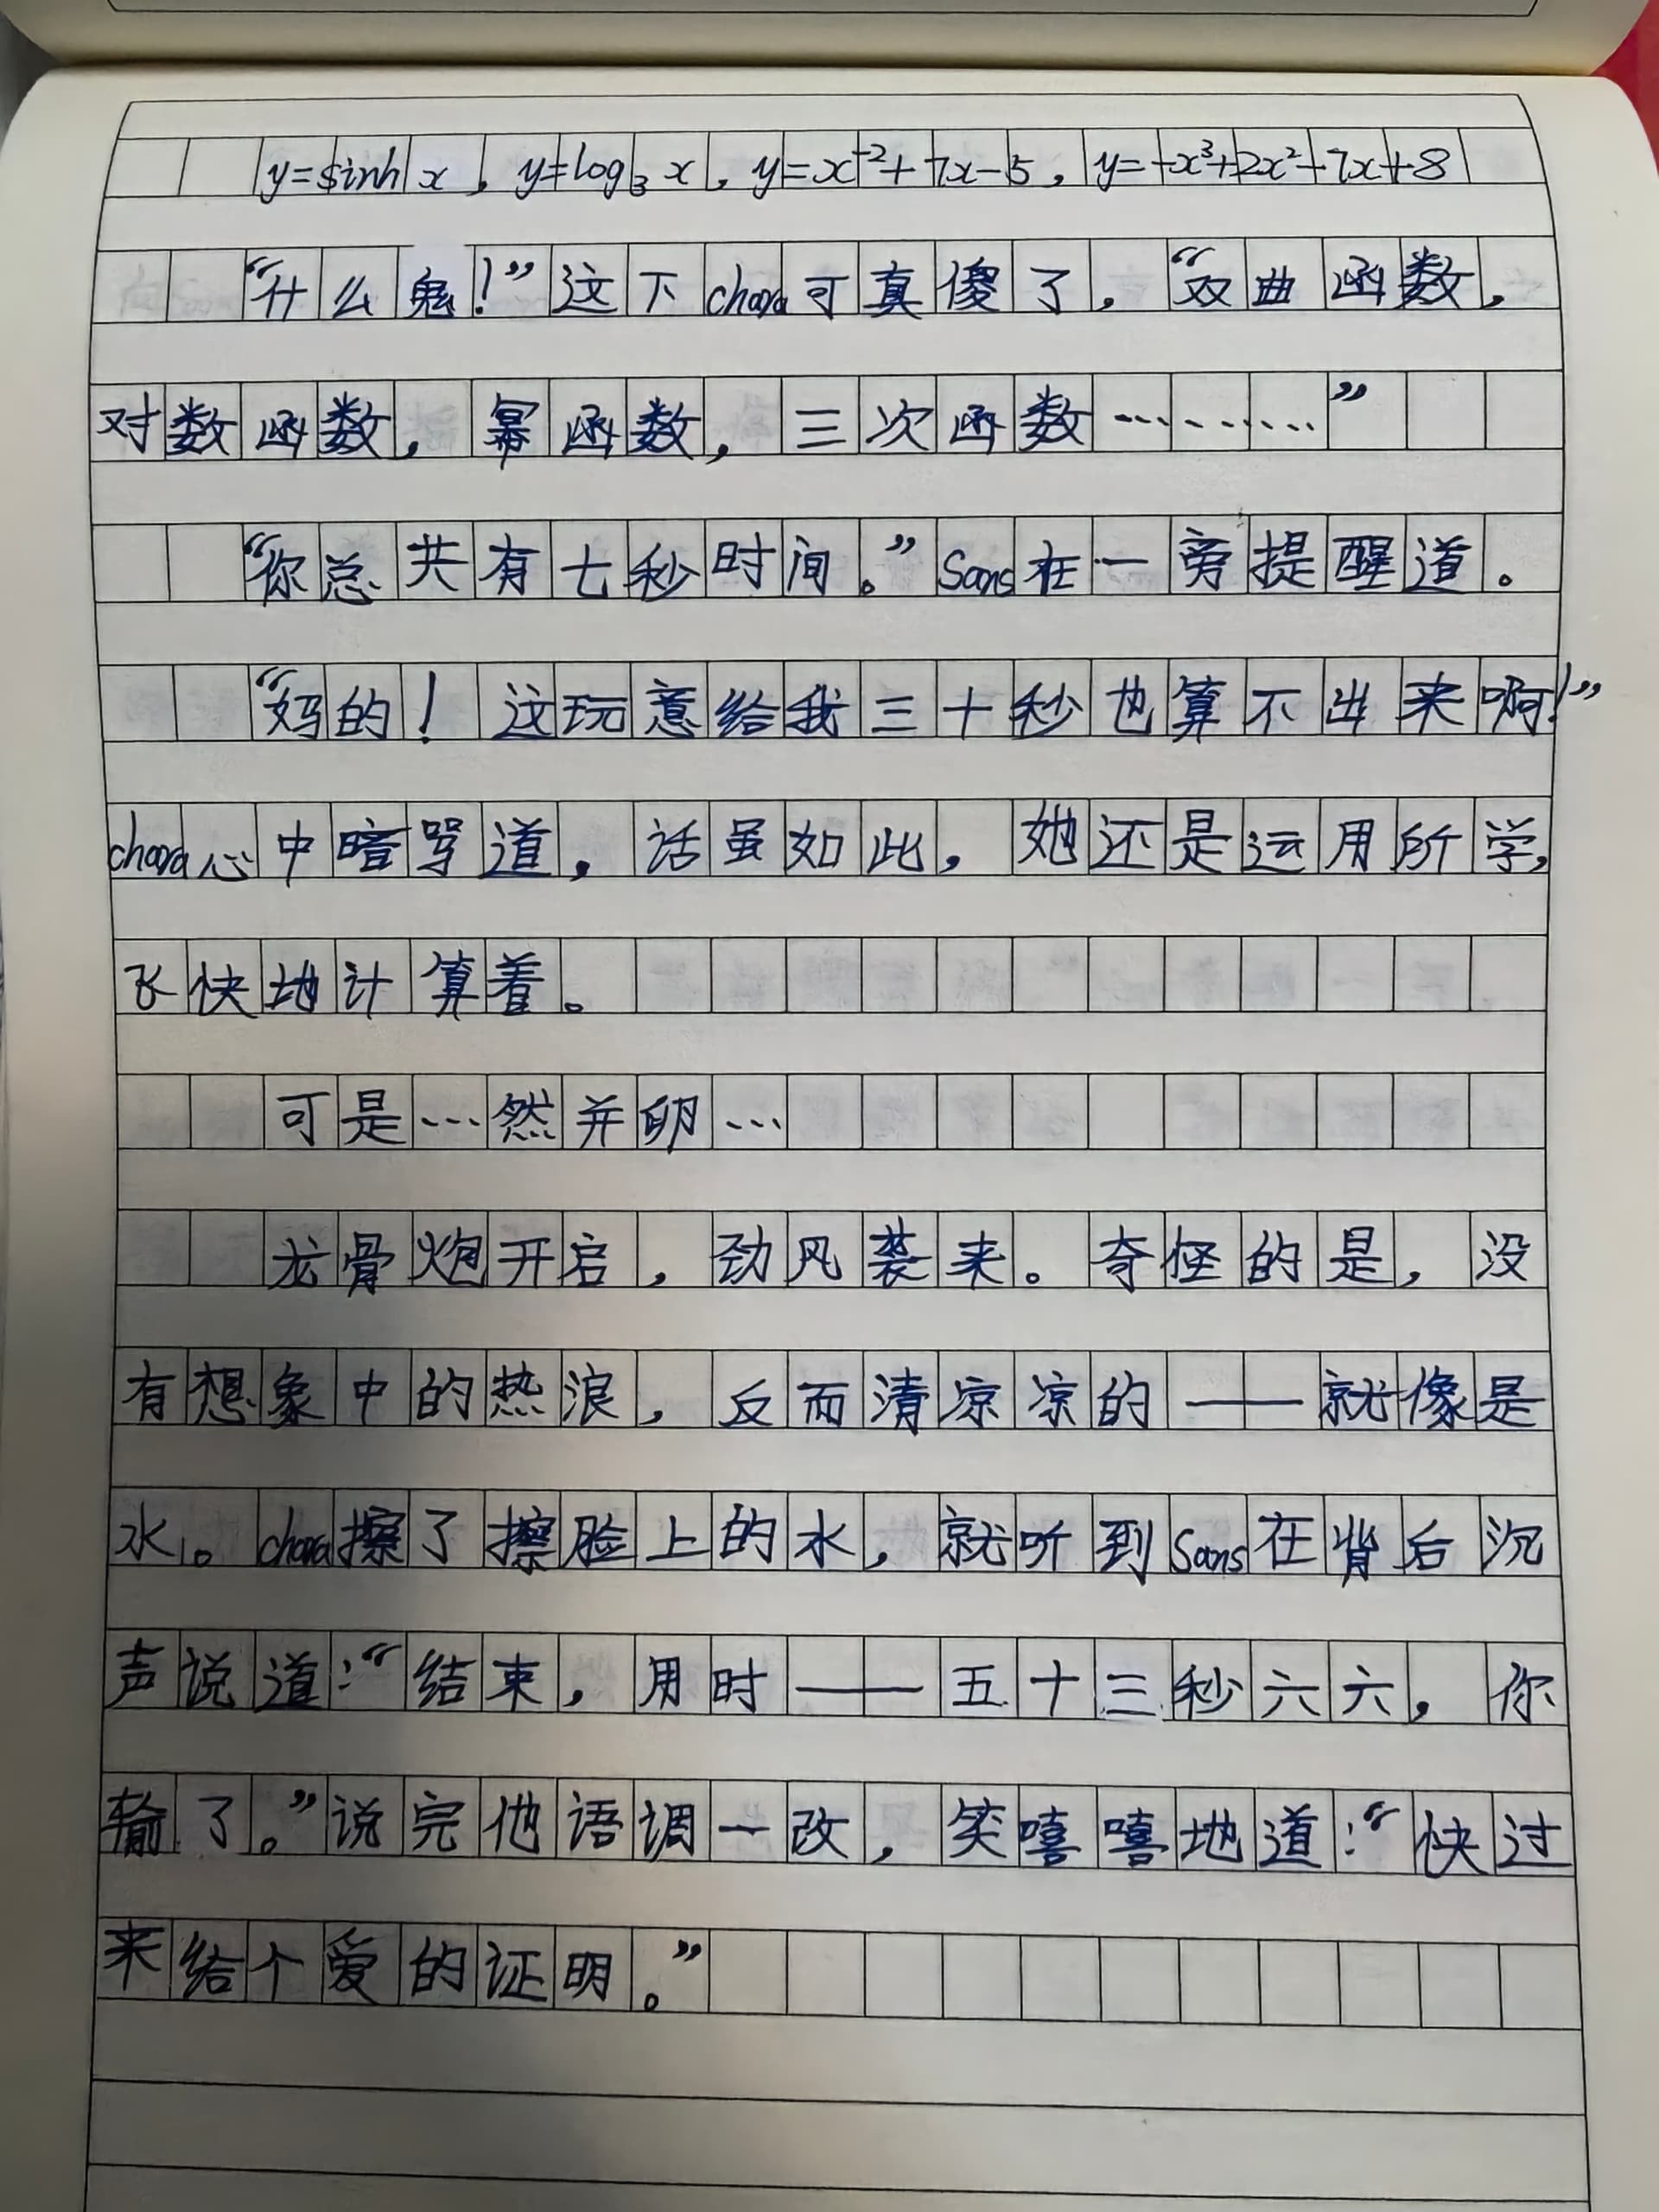 y=sinh x，y=log₃ x，y=x⁻²+7x-5，y=-x³+2x²-7x+8
“什么鬼！”这下chara可真傻了，“双曲函数，
对数函数，幂函数，三次函数………”
“你总共有七秒时间。”Sans在一旁提醒道。
“妈的！这玩意给我三十秒也算不出来啊！”
chara心中暗骂道，话虽如此，她还是运用所学，
飞快地计算着。
可是…然并卵…
龙骨炮开启，劲风袭来。奇怪的是，没
有想象中的热浪，反而清凉凉的——就像是
水。chara擦了擦脸上的水，就听到Sans在背后沉
声说道：“结束，用时——五十三秒六六，你
输了。”说完他语调一改，笑嘻嘻地道：“快过
来给个爱的证明。”